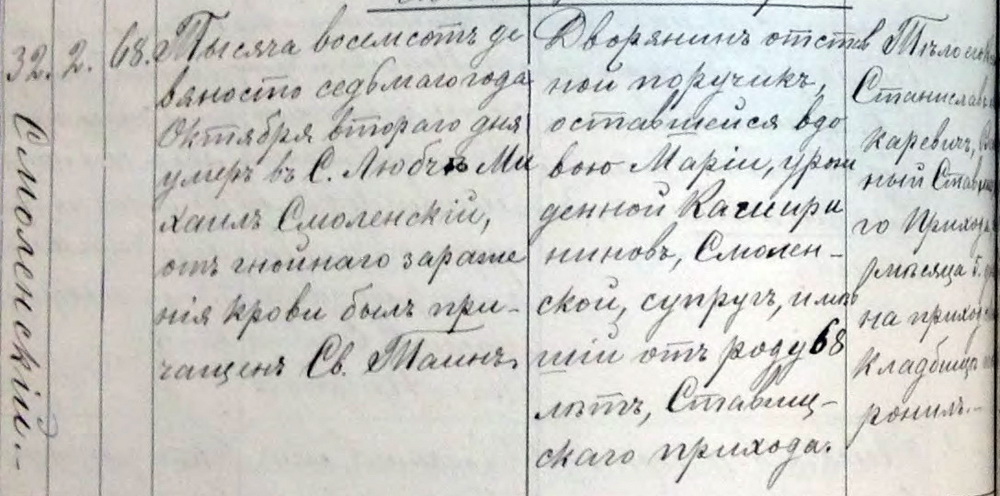 32. 2. 68.
Смоленскій.-
Тысяча восемсотъ де
вяносто седьмаго года
Октября втораго дня
умеръ въ С. Любчѣ Ми
хаилъ Смоленскій,
отъ гнойнаго зараже
нія крови былъ при-
чащенъ Св. Таинъ.
Дворянинъ отстав
ной поручикъ,
оставшейся вдо
вою Маріи, урож
денной Касмири
новъ, Смолен-
ской, супругъ, имѣв
шій отъ роду 68
лѣтъ, Ставищ-
скаго прихода.
Тѣло его
Станислав
каревичъ,
ный Став
го Прихода
мѣсяца 5
на приход
Кладбищѣ
ронилъ.-